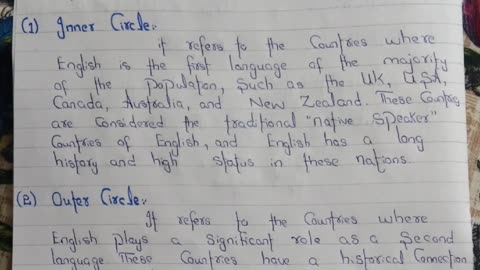 (1) Inner Circle:-
it refers to the Countries where
English is the first language of the majority
of the population, Such as the UK, USA,
Canada, Australia, and New Zealand. These Countries
are Considered the traditional "native Speaker"
Countries of English, and English has a long
history and high status in these nations.
(2) Outer Circle:-
It refers to the Countries where
English plays a significant role as a Second
language. These Countries have a historical Connection